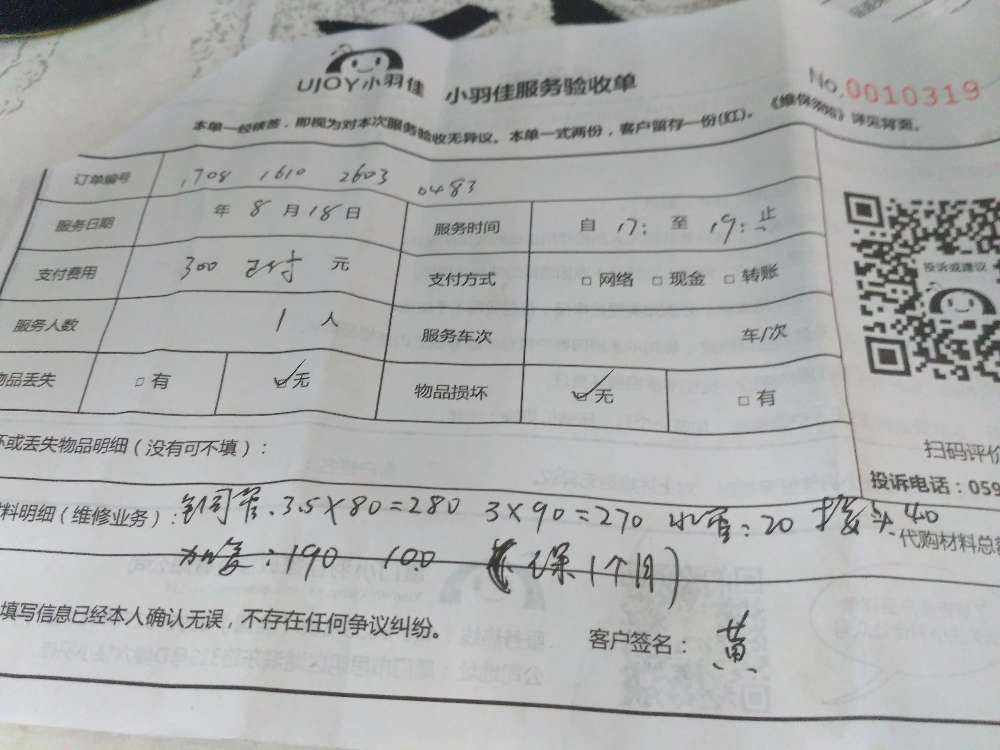 UJOY小羽佳 小羽佳服务验收单 No.0010319
本单一经核签，即视为对本次服务验收无异议。本单一式两份，客户留存一份(红)。《维保须知》详见背面。
订单编号 1708 1610 2603 0483
服务日期 年 8 月 18 日 服务时间 自 17: 至 19: 止
支付费用 300 已付 元 支付方式 □ 网络 □ 现金 □ 转账
服务人数 1 人 服务车次 车/次
物品丢失 □ 有 ☑ 无 物品损坏 ☑ 无 □ 有
投诉或建议
坏或丢失物品明细（没有可不填）：
扫码评价
投诉电话：059
料明细（维修业务）：铜管.3.5×80=280 3×90=270 水管：20 接头.40
代购材料总
：190 100 保1个月)
填写信息已经本人确认无误，不存在任何争议纠纷。
客户签名：黄